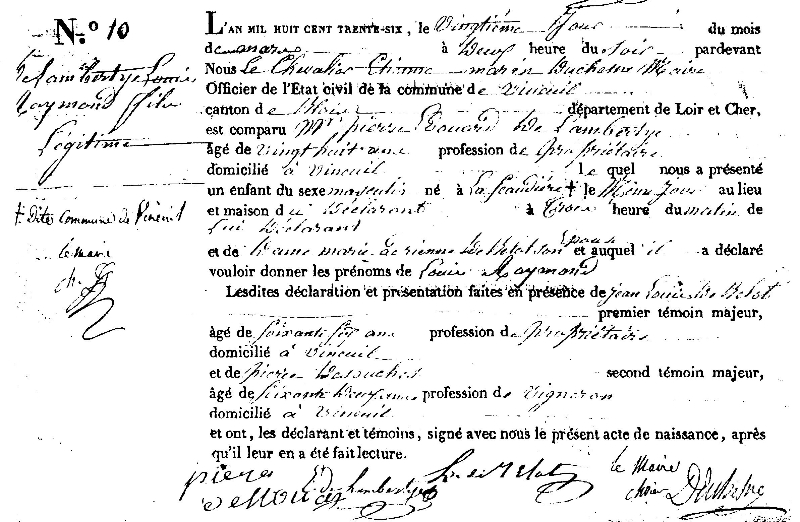 N.º 10
De Lambertye Louis
Raymond fils
Légitime
† Dite Commune de Vineuil
le maire
ch.
L'AN MIL HUIT CENT TRENTE-SIX, le Vingtième Jour du mois
de mars à Deux heure du Soir pardevant
Nous Le Chevalier Etienne marin Duchesne Maire
Officier de l'Etat civil de la commune de Vineuil
canton de Blois département de Loir et Cher,
est comparu Mr pierre Edouard De Lambertye
âgé de vingt huit ans profession de propriétaire
domicilié à vineuil le quel nous a présenté
un enfant du sexe masculin né à La † le Même Jour au lieu
et maison du Déclarant à Trois heure du matin de
Lui Déclarant
et de Dame marie De Belot son Epouse et auquel il a déclaré
vouloir donner les prénoms de Louis Raymond
Lesdites déclaration et présentation faites en présence de Jean Louis De Belot
premier témoin majeur,
âgé de Soixante ans profession de propriétaire
domicilié à vineuil
et de pierre Desouches second témoin majeur,
âgé de Soixante Deux ans profession de Vigneron
domicilié à vineuil
et ont, les déclarant et témoins, signé avec nous le présent acte de naissance, après
qu'il leur en a été fait lecture.
piere Ed de Lambertye L. de Belot le Maire
Desouches cher Duchesne